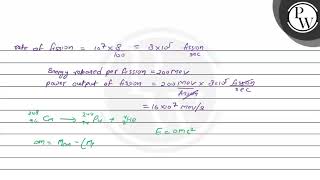 PW
rate of fission = 10⁷ × 8/100 = 8×10⁵ fission/sec
Energy released per fission = 200 MeV
power output of fission = 200 MeV/fission × 8×10⁵ fission/sec
= 16×10⁷ MeV/s
²⁴⁸₉₆Cm → ²⁴⁴₉₄Pu + ⁴₂He
E = Δmc²